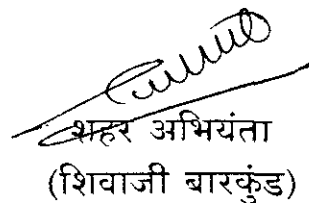 शहर अभियंता
(शिवाजी बारकुंड)